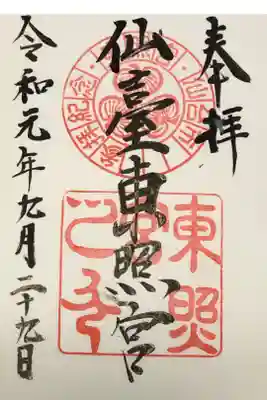 奉拝
仙臺東照宮
令和元年九月二十九日
東照